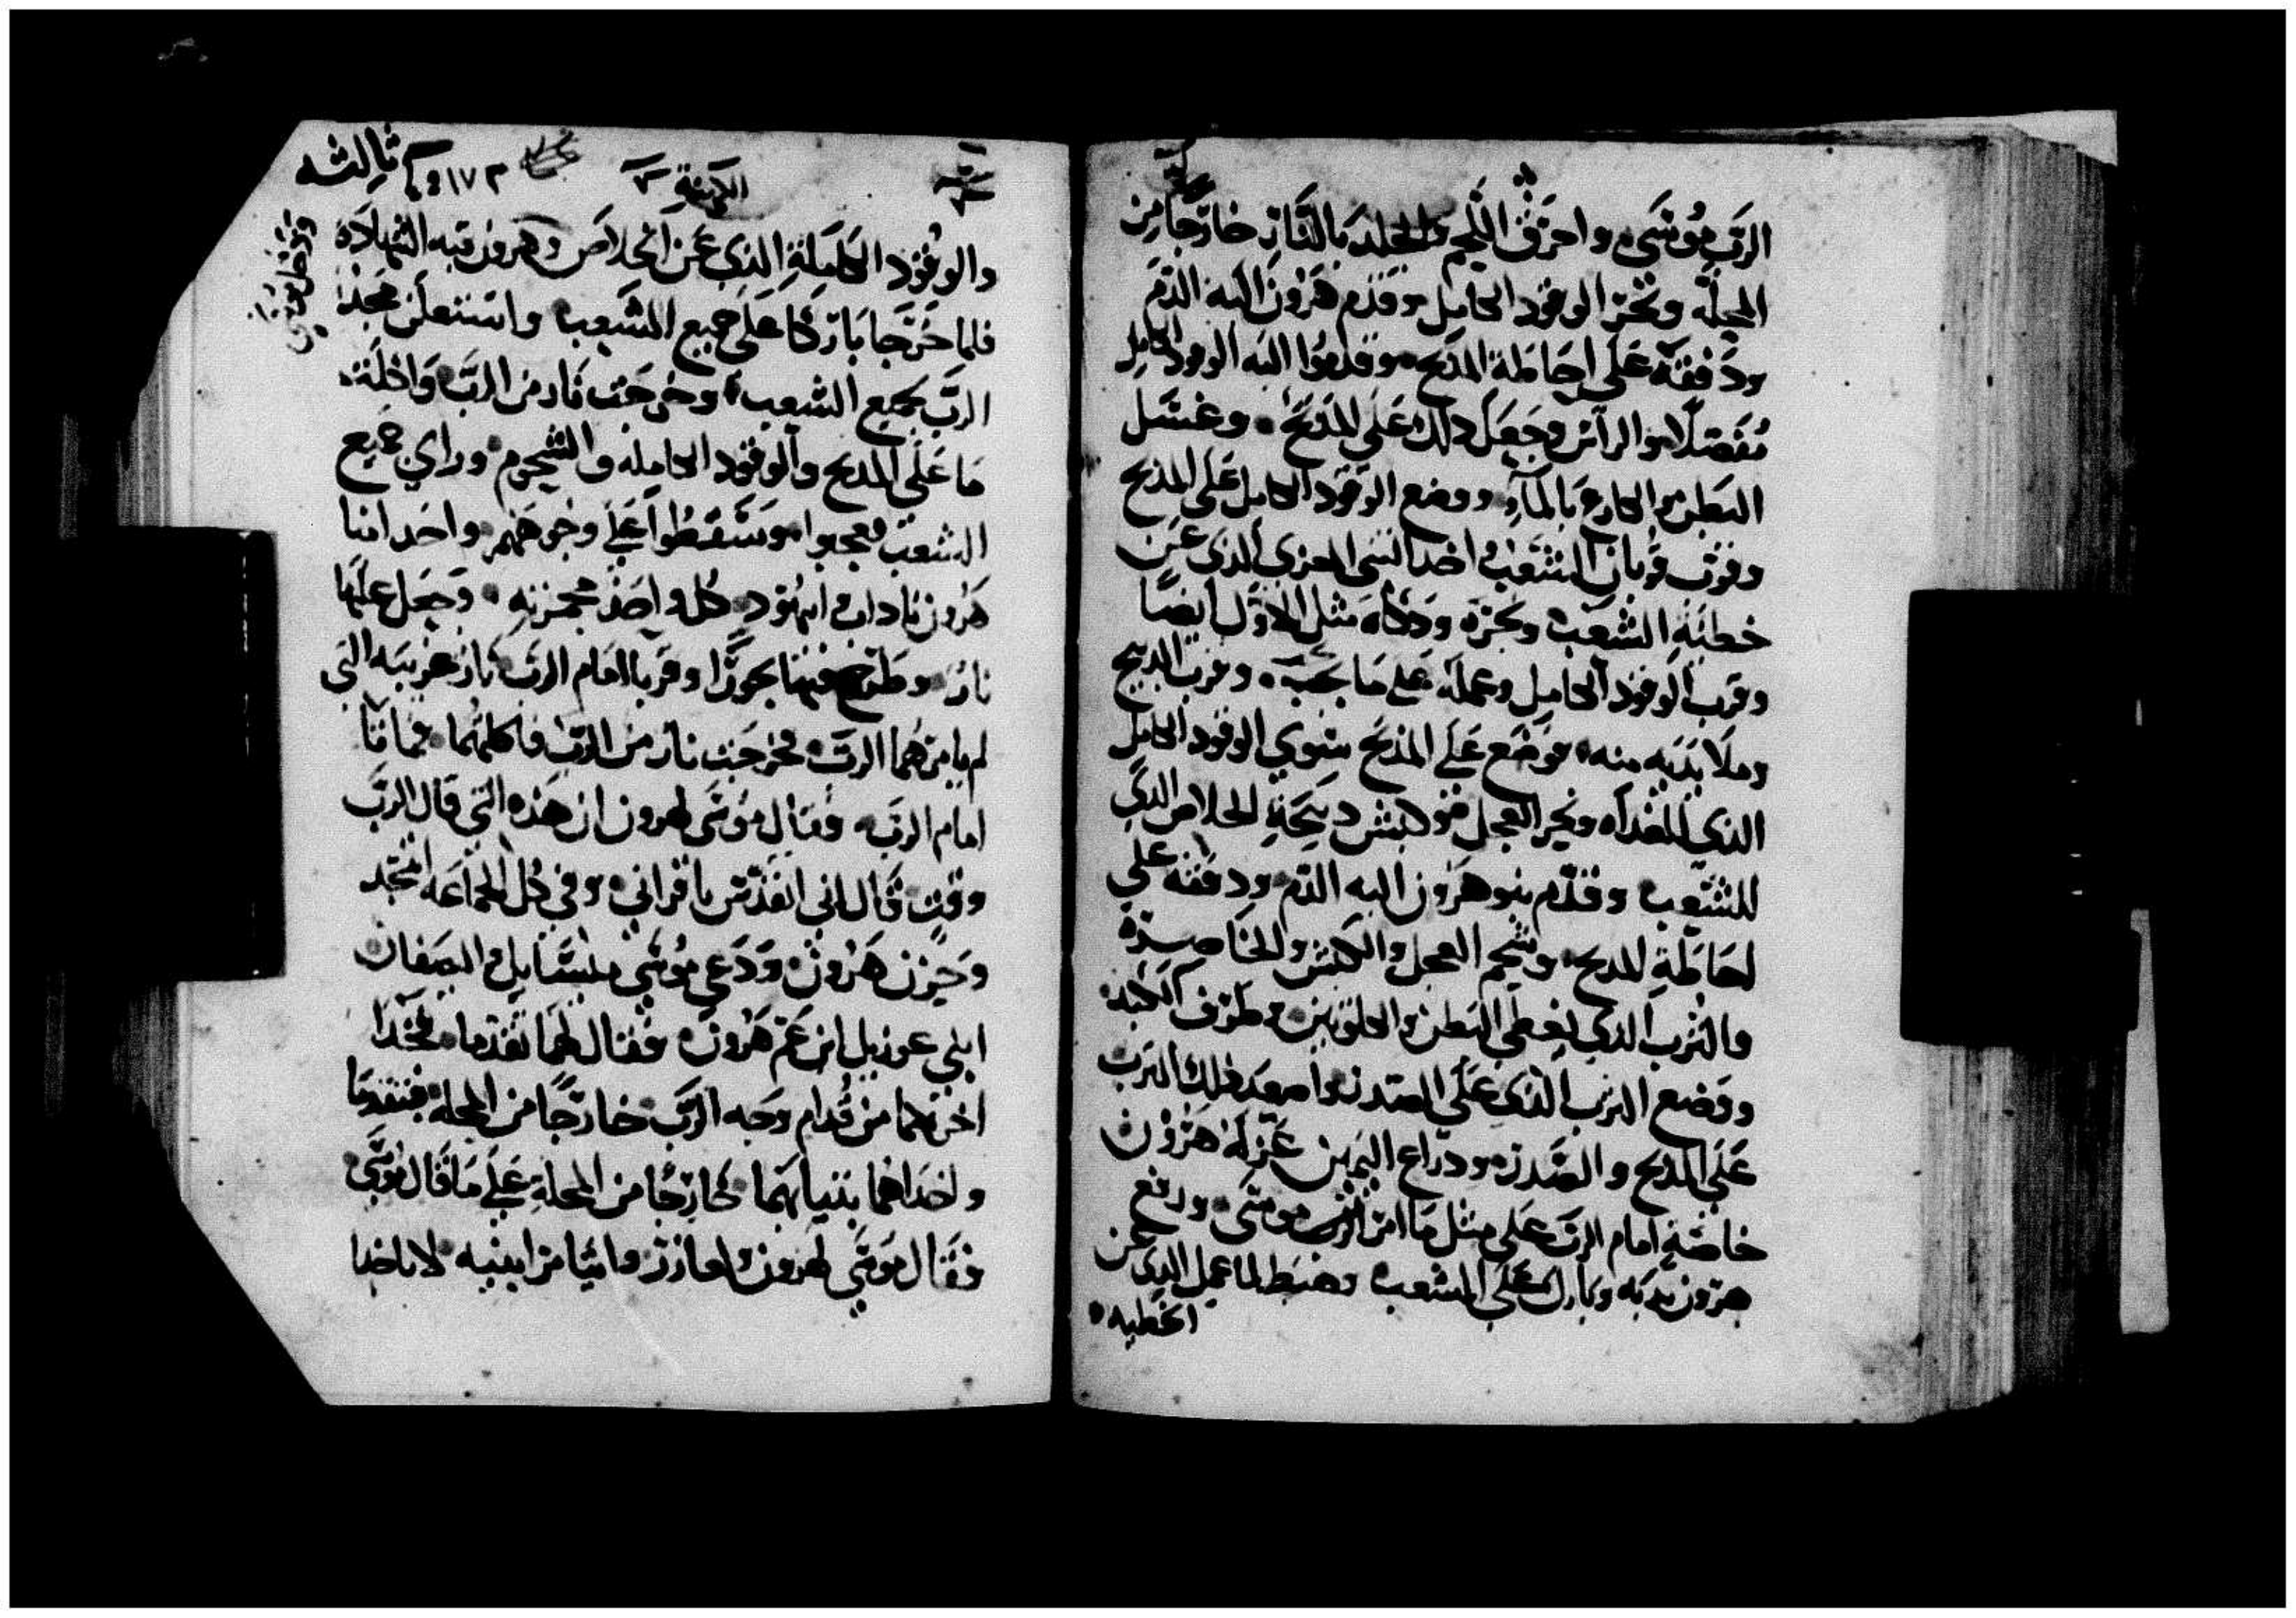 الرب موسى واحرق اللحم والجلد بالنار خارجا من
المحلة ونحر الوقود الكامل وقدم هرون اليه الدم
ودفقه على احاطة المدبح وقدموا اليه الوقود الكامل
مفصلا والراس وجعل دلك على المدبح وغسل
البطن والكارع بالمآء ووضع الوقود الكامل على المدبح
وقرب قربان الشعب واخد التي المعزي الذي عن
خطية الشعب ونحره ودكاه مثل الاول ايضا
وقرب الوقود الكامل وعمله على ما يجب وقرب الدبيح
وملا يديه منه ووضع على المذبح سوي الوقود الكامل
الذي للغداه ونحر العجل وكبش دبيحة الخلاص الدي
للشعب وقدم بنو هرون اليه الدم ودفقه على
احاطة المدبح وشحم العجل والكبش والخاصرة
والثرب الدي يغطي البطن والكلوتين وطرف الكبد
ووضع الترب الذي على الصدر واصعد ذلك الترب
على المدبح والصدر ودراع اليمين عزله هرون
خاصة امام الرب على مثل ما امر الرب موسى ورفع
هرون يديه وبارك على الشعب وهبط لما عمل الدي عن
الخطيه
ثالثه
والوقود الكاملة الذي عن الخلاص وهرون قبه الشهادة
ودخل موسى
فلما خرجا باركا على جميع الشعب واستعلن مجد
الرب بجميع الشعب وخرجت نار من الرب واكلت
ما على المدبح والوقود الكامله والشحوم وراي جميع
الشعب وعجبوا وسقطوا على وجوههم واخد ابنا
هرون ناداب وابيهود كل واحد مجمرته وجعل عليها
نار وطرح فيها بخورا وقربا امام الرب نار غريبه التي
لم يامرهما الرب فخرجت نار من الرب فاكلتهما فماتا
امام الرب فقال موسى لهرون ان هذه التي قال الرب
وقت قال اني اتقدس باقراني وفي كل الجماعه اتمجد
وحزن هرون ودعى موسى ميسايل والصفان
ابني عوزيل ابن عم هرون فقال لهما تقدما فخدا
اخوتكما من قدام وجه الرب خارجا من المحلة فتقدما
واخداهما بتيابهما خارجا من المحلة على ما قال موسى
فقال موسى لهرون والعازر وايثامر ابنيه لا تاخدا